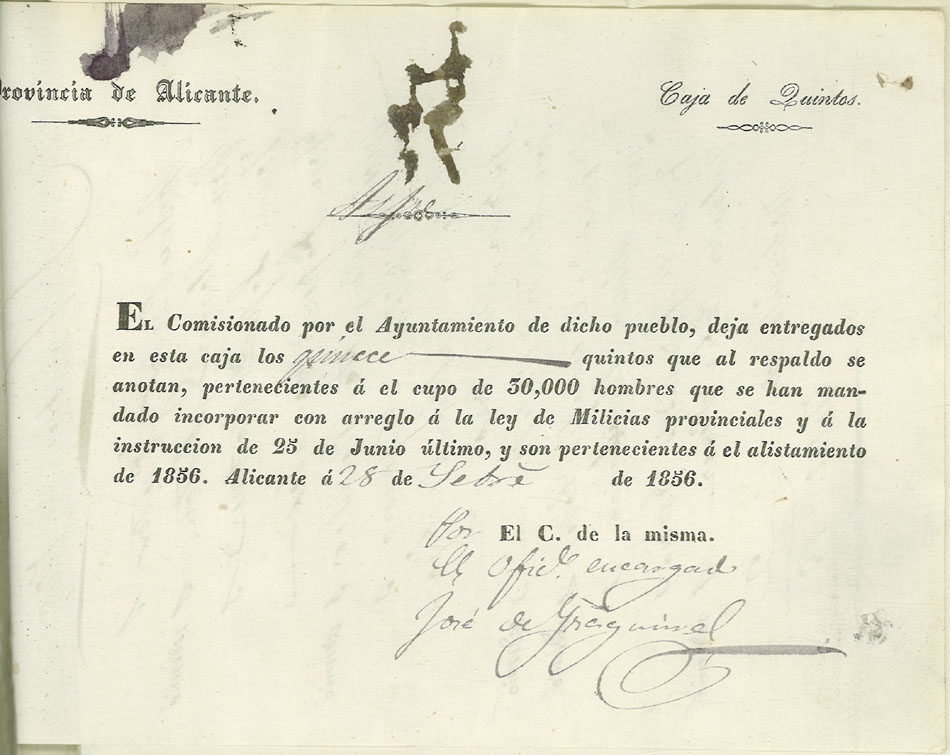 rovincia de Alicante.
Caja de Quintos.
Aspe
EL Comisionado por el Ayuntamiento de dicho pueblo, deja entregados
en esta caja los quince quintos que al respaldo se
anotan, pertenecientes á el cupo de 30,000 hombres que se han man-
dado incorporar con arreglo á la ley de Milicias provinciales y á la
instruccion de 25 de Junio último, y son pertenecientes á el alistamiento
de 1856. Alicante á 28 de Setre de 1856.
Por El C. de la misma.
El Ofic.l encargado
José de